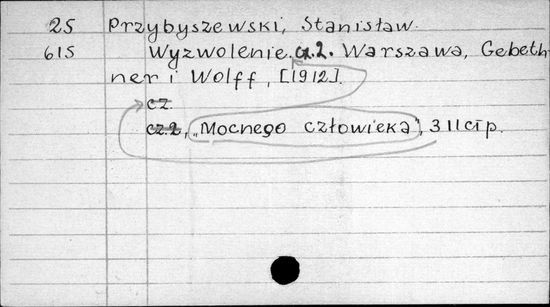 25 Przybyszewski, Stanisław.
615 Wyzwolenie. cz.2. Warszawa, Gebeth-
ner i Wolff, [1912].
cz.
cz.2, „Mocnego człowieka", 311 стр.